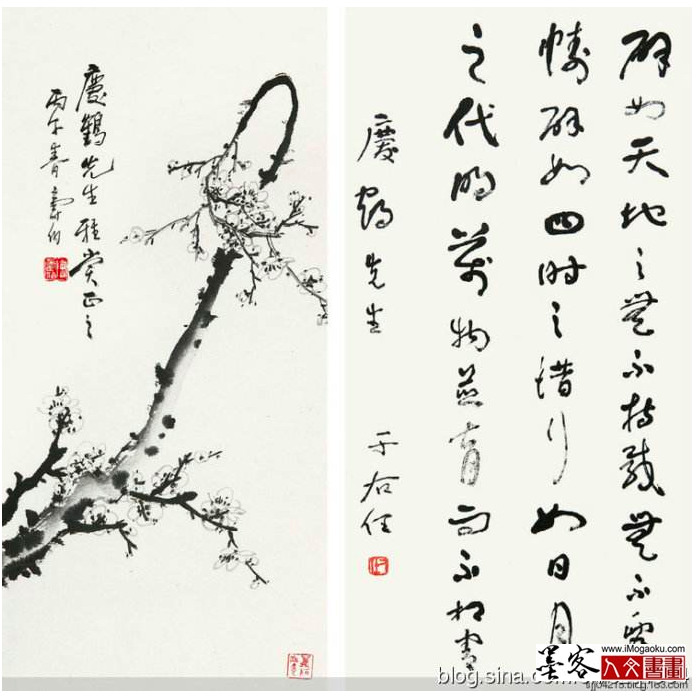 辟如天地之無不持載無不覆
幬辟如四時之錯行如日月
之代明萬物並育而不相害
慶鶴先生
于右任
慶鶴先生雅賞正之
丙午春壽伯
墨客
www.iMogaoku.com
人文書畫
blog.sina